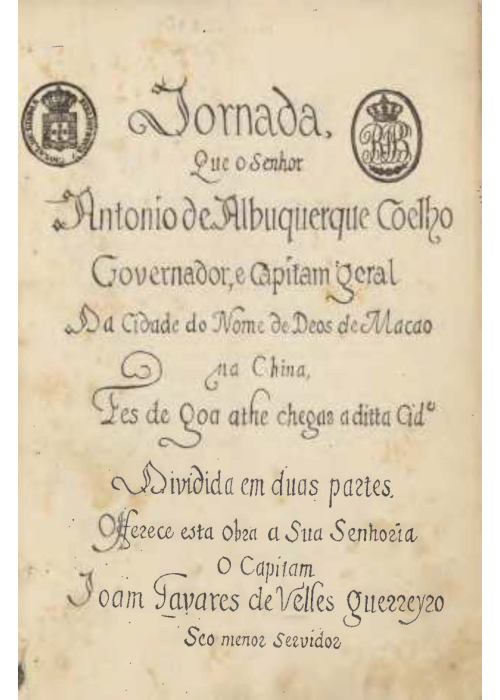 Jornada,
Que o Senhor
Antonio de Albuquerque Coelho
Governador, e Capitam geral
Da Cidade do Nome de Deos de Macao
na China,
Fes de goa athe chegar a ditta Cidᵉ
Dividida em duas partes.
Offerece esta obra a Sua Senhoria
O Capitam
Joam Tavares de Velles guerreyro
Seo menor Servidor